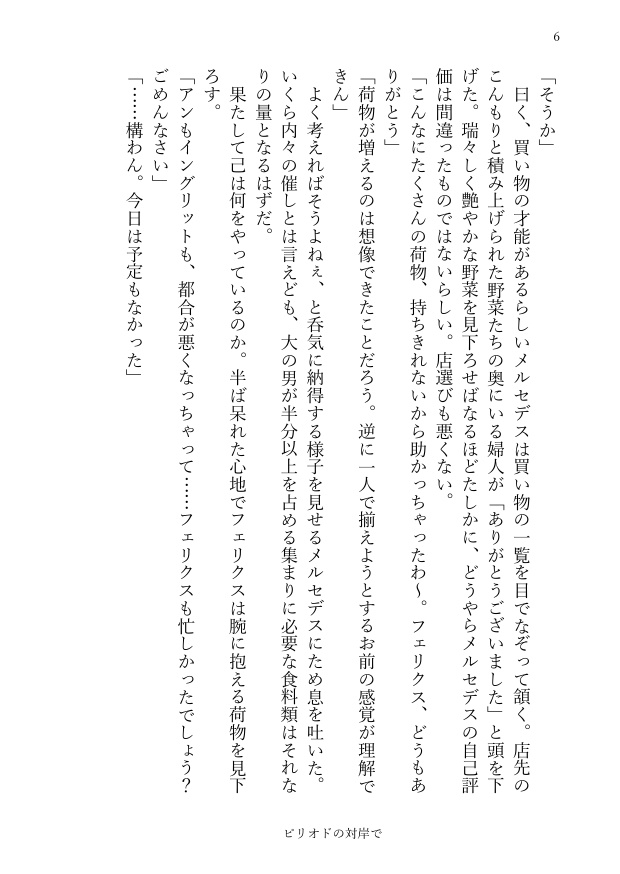 6
「そうか」
　曰く、買い物の才能があるらしいメルセデスは買い物の一覧を目でなぞって頷く。店先の
こんもりと積み上げられた野菜たちの奥にいる婦人が「ありがとうございました」と頭を下
げた。瑞々しく艶やかな野菜を見下ろせばなるほどたしかに、どうやらメルセデスの自己評
価は間違ったものではないらしい。店選びも悪くない。
「こんなにたくさんの荷物、持ちきれないから助かっちゃったわ～。フェリクス、どうもあ
りがとう」
「荷物が増えるのは想像できたことだろう。逆に一人で揃えようとするお前の感覚が理解で
きん」
　よく考えればそうよねぇ、と呑気に納得する様子を見せるメルセデスにため息を吐いた。
いくら内々の催しとは言えども、大の男が半分以上を占める集まりに必要な食料類はそれな
りの量となるはずだ。
　果たして己は何をやっているのか。半ば呆れた心地でフェリクスは腕に抱える荷物を見下
ろす。
「アンもイングリットも、都合が悪くなっちゃって……フェリクスも忙しかったでしょう？
ごめんなさい」
「……構わん。今日は予定もなかった」
ピリオドの対岸で